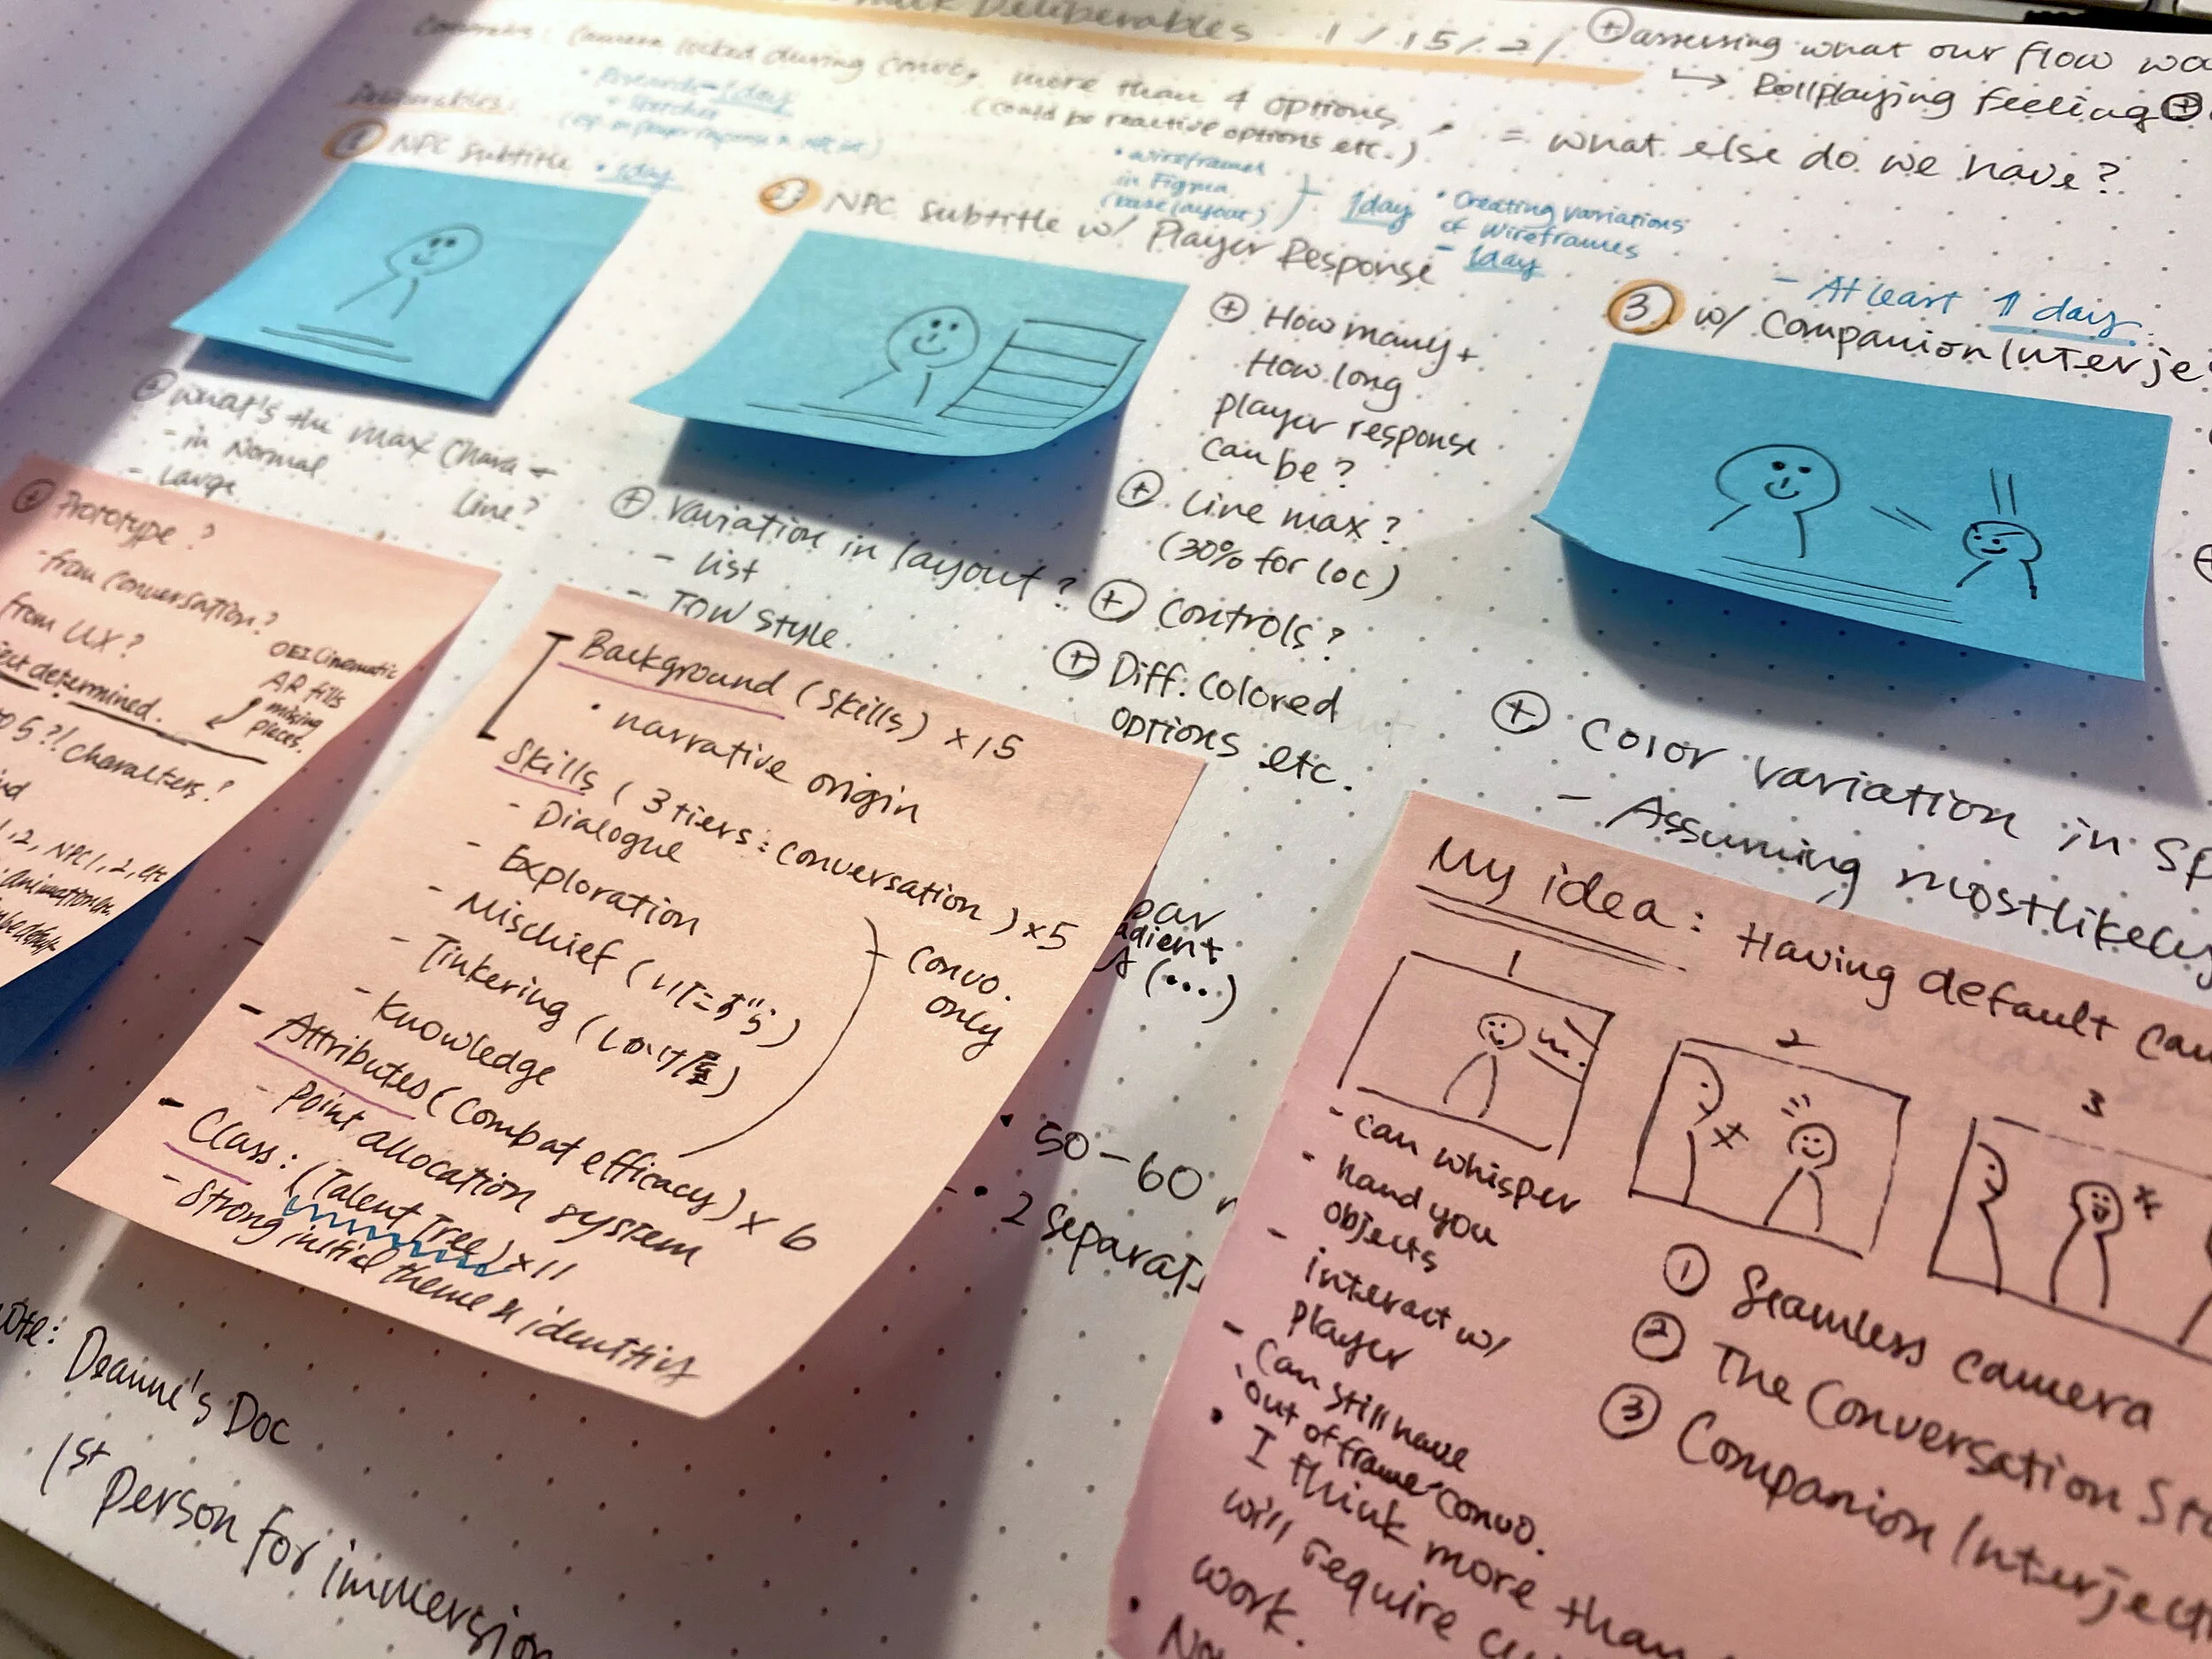 Deliverables 1/15/21
Camera locked during convo, more than 4 options
(could be reactive options etc.)
= what else do we have?
⊕ assessing what our flow wa
↳ Rollplaying feeling ⊕
Deliverables:
Research - 1day
1 NPC Subtitle • 1day
2 NPC Subtitle w/ Player Response
• wireframes
in Figma
(base layout)
1day
• Creating variations
of wireframes
- 1day
- At least 1 day
3 w/ Companion Interje
⊕ What's the max Chara +
Line?
- in Normal
- Large
⊕ Variation in layout?
- List
- TOW Style.
⊕ How many +
How long
player response
can be?
⊕ Line max?
(30% for loc)
⊕ Controls?
⊕ Diff. Colored
options etc.
⊕ Color variation in Sp
- Assuming mostlikely
⊕ Prototype?
- from conversation?
from UX?
ect determined.
OEI Cinematic
AR fills
missing
places.
to 5?! Characters?
nd
1, 2, NPC 1, 2, etc
Background (Skills) ×15
• narrative origin
Skills (3 tiers: conversation) ×5
- Dialogue
- Exploration
- Mischief (いたずら)
- Tinkering (しかけ屋)
- Knowledge
Convo.
only
- Attributes (Combat efficacy) × 6
- Point allocation system
- Class: (Talent Tree) ×11
- Strong initial theme & identity
par
adient
(...)
• 50-60
• 2 Separat
ote: Deanne's Doc
1st person for immersion
My idea: Having default cam
1
2
3
- can whisper
- hand you
objects
- interact w/
player
- Can still have
"out of frame" convo.
• I think more than
will require cu
work.
• No
① Seamless camera
② The Conversation Sta
③ Companion Interjecti